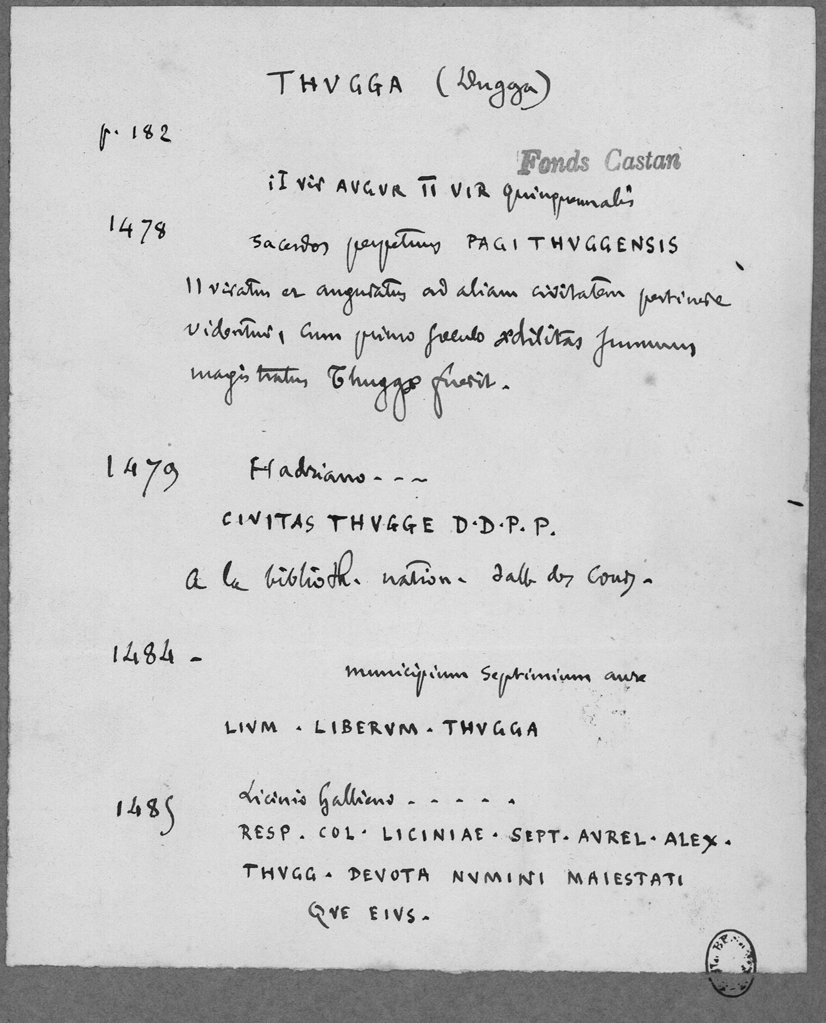 THVGGA (Dugga)
p. 182
Fonds Castan
II vir AVGVR II VIR quinquennalis
1478
sacerdos perpetuus PAGI THVGGENSIS
II viratus et auguratus ad aliam civitatem pertinere
videntur, cum primo sæculo ædilitas summus
magistratus Thuggæ fuerit.
1479 Hadriano - - -
CIVITAS THVGGE D.D.P.P.
a la biblioth. nation. salle des Cours.
1484 -
municipium Septimium aure
LIVM . LIBERVM . THVGGA
1485 Licinio Gallieno - - - - -
RESP . COL . LICINIAE . SEPT . AVREL . ALEX .
THVGG . DEVOTA NVMINI MAIESTATI
QVE EIVS .